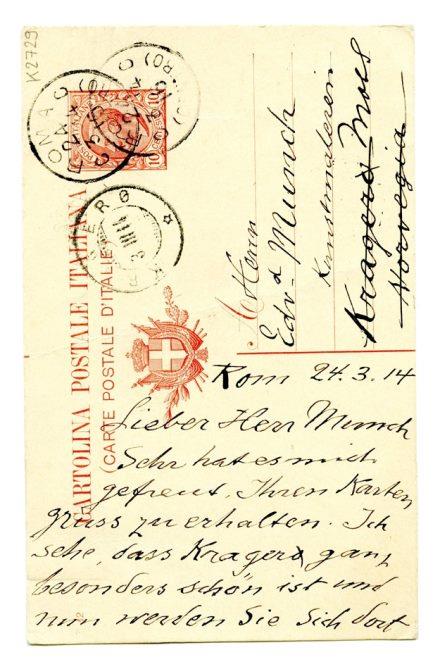 K2729
CARTOLINA POSTALE ITALIANA
(CARTE POSTALE D'ITALIE)
ROMA
KRAGERØ
Herrn
Edv. Munch
Kunstmaleren
Kragerø Moss
Norvegia
Rom 24.3.14
Lieber Herr Munch
Sehr hat es mich
gefreut, Ihren Karten
gruss zu erhalten. Ich
sehe, dass Kragerø ganz
besonders schön ist und
nun werden Sie sich dort